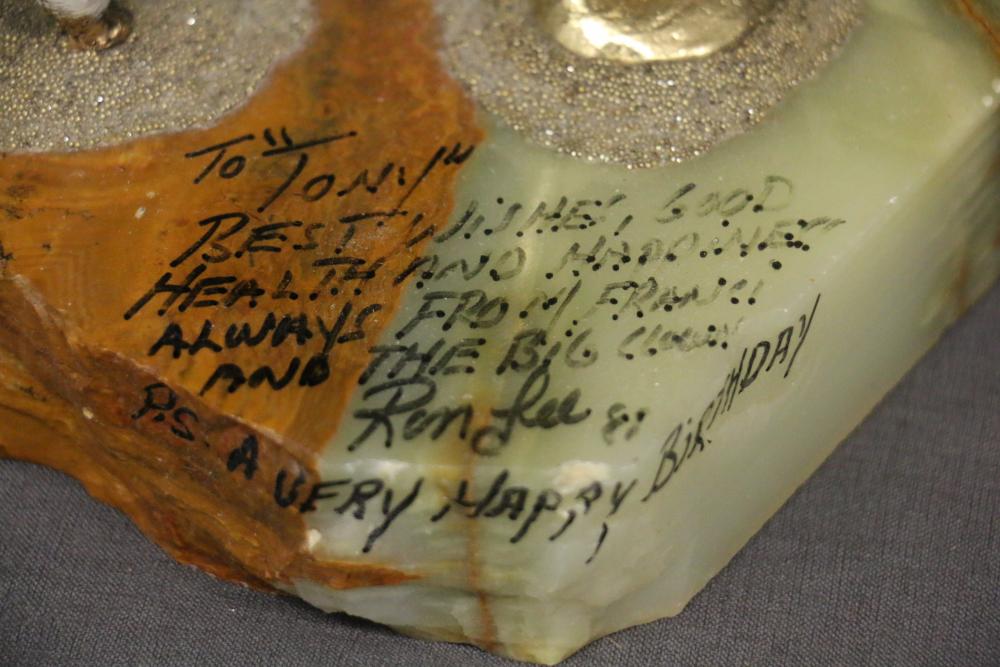 To "Tony"
BEST WISHES, GOOD
HEALTH AND HAPPINESS
ALWAYS FROM FRANCI
AND THE BIG CLOWN
Ron Lee 81
P.S. A VERY HAPPY BIRTHDAY